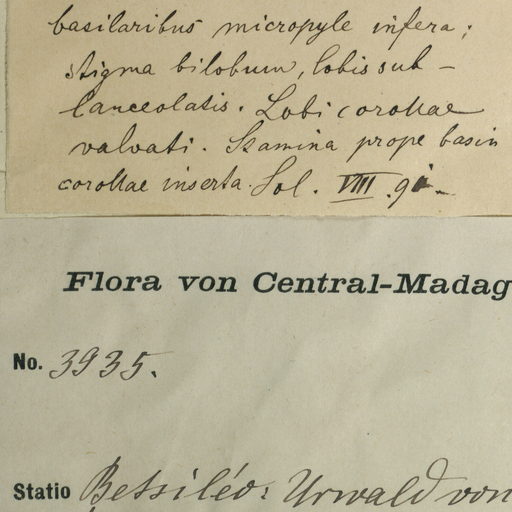 basilaribus micropyle infera;
stigma bilobum, lobis sub-
lanceolatis. Lobi corollae
valvati. Stamina prope basin
corollae inserta. Sol. VIII.
Flora von Central-Madag
No. 3935.
Statio Betsiléo: Urwald von